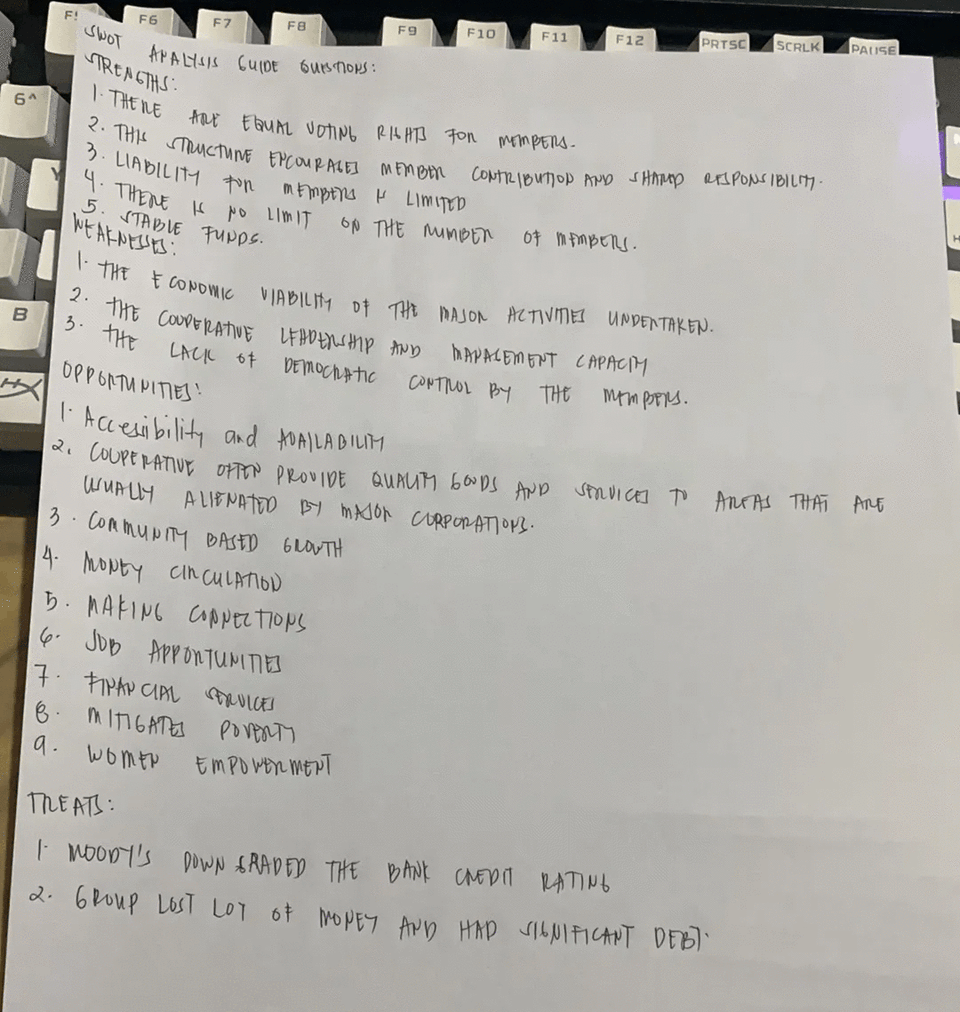 F5 F6 F7 F8 F9 F10 F11 F12 PRTSC SCRLK PAUSE
6^
Y
B
H
SWOT ANALYSIS GUIDE QUESTIONS:
STRENGTHS:
1. THERE ARE EQUAL VOTING RIGHTS FOR MEMBERS.
2. THIS STRUCTURE ENCOURAGES MEMBER CONTRIBUTION AND SHARED RESPONSIBILITY.
3. LIABILITY FOR MEMBERS IS LIMITED
4. THERE IS NO LIMIT ON THE NUMBER OF MEMBERS.
5. STABLE FUNDS.
WEAKNESSES:
1. THE ECONOMIC VIABILITY OF THE MAJOR ACTIVITIES UNDERTAKEN.
2. THE COOPERATIVE LEADERSHIP AND MANAGEMENT CAPACITY
3. THE LACK OF DEMOCRATIC CONTROL BY THE MEMBERS.
OPPORTUNITIES:
1. Accessibility and AVAILABILITY
2. COOPERATIVE OFTEN PROVIDE QUALITY GOODS AND SERVICES TO AREAS THAT ARE
USUALLY ALIENATED BY MAJOR CORPORATIONS.
3. COMMUNITY BASED GROWTH
4. MONEY CIRCULATION
5. MAKING CONNECTIONS
6. JOB APPORTUNITIES
7. FINANCIAL SERVICES
8. MITIGATES POVERTY
9. WOMEN EMPOWERMENT
TREATS:
1. MOODY'S DOWN GRADED THE BANK CREDIT RATING
2. GROUP LOST LOT OF MONEY AND HAD SIGNIFICANT DEBT.